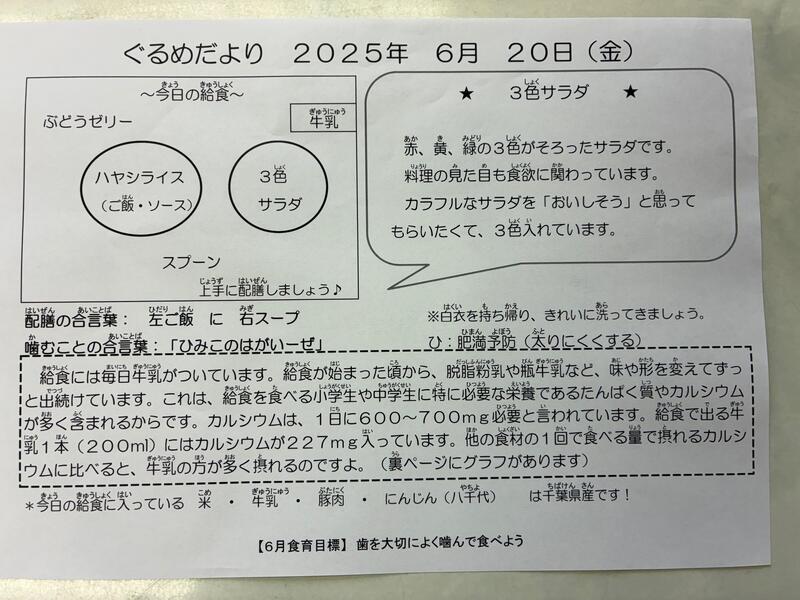 ぐるめだより 2025年 6月 20日(金)
~今日の給食~
ぶどうゼリー
牛乳
ハヤシライス
(ご飯・ソース)
3色
サラダ
スプーン
上手に配膳しましょう♪
★ 3色サラダ ★
赤、黄、緑の3色がそろったサラダです。
料理の見た目も食欲に関わっています。
カラフルなサラダを「おいしそう」と思って
もらいたくて、3色入れています。
配膳の合言葉: 左ご飯 に 右スープ
※白衣を持ち帰り、きれいに洗ってきましょう。
噛むことの合言葉:「ひみこのはがいーぜ」
ひ:肥満予防(太りにくくする)
給食には毎日牛乳がついています。給食が始まった頃から、脱脂粉乳や瓶牛乳など、味や形を変えてずっ
と出続けています。これは、給食を食べる小学生や中学生に特に必要な栄養であるたんぱく質やカルシウム
が多く含まれるからです。カルシウムは、1日に600~700mg必要と言われています。給食で出る牛
乳1本(200ml)にはカルシウムが227mg入っています。他の食材の1回で食べる量で摂れるカルシ
ウムに比べると、牛乳の方が多く摂れるのですよ。(裏ページにグラフがあります)
*今日の給食に入っている 米 ・ 牛乳 ・ 豚肉 ・ にんじん(八千代) は千葉県産です!
【6月食育目標】 歯を大切によく噛んで食べよう